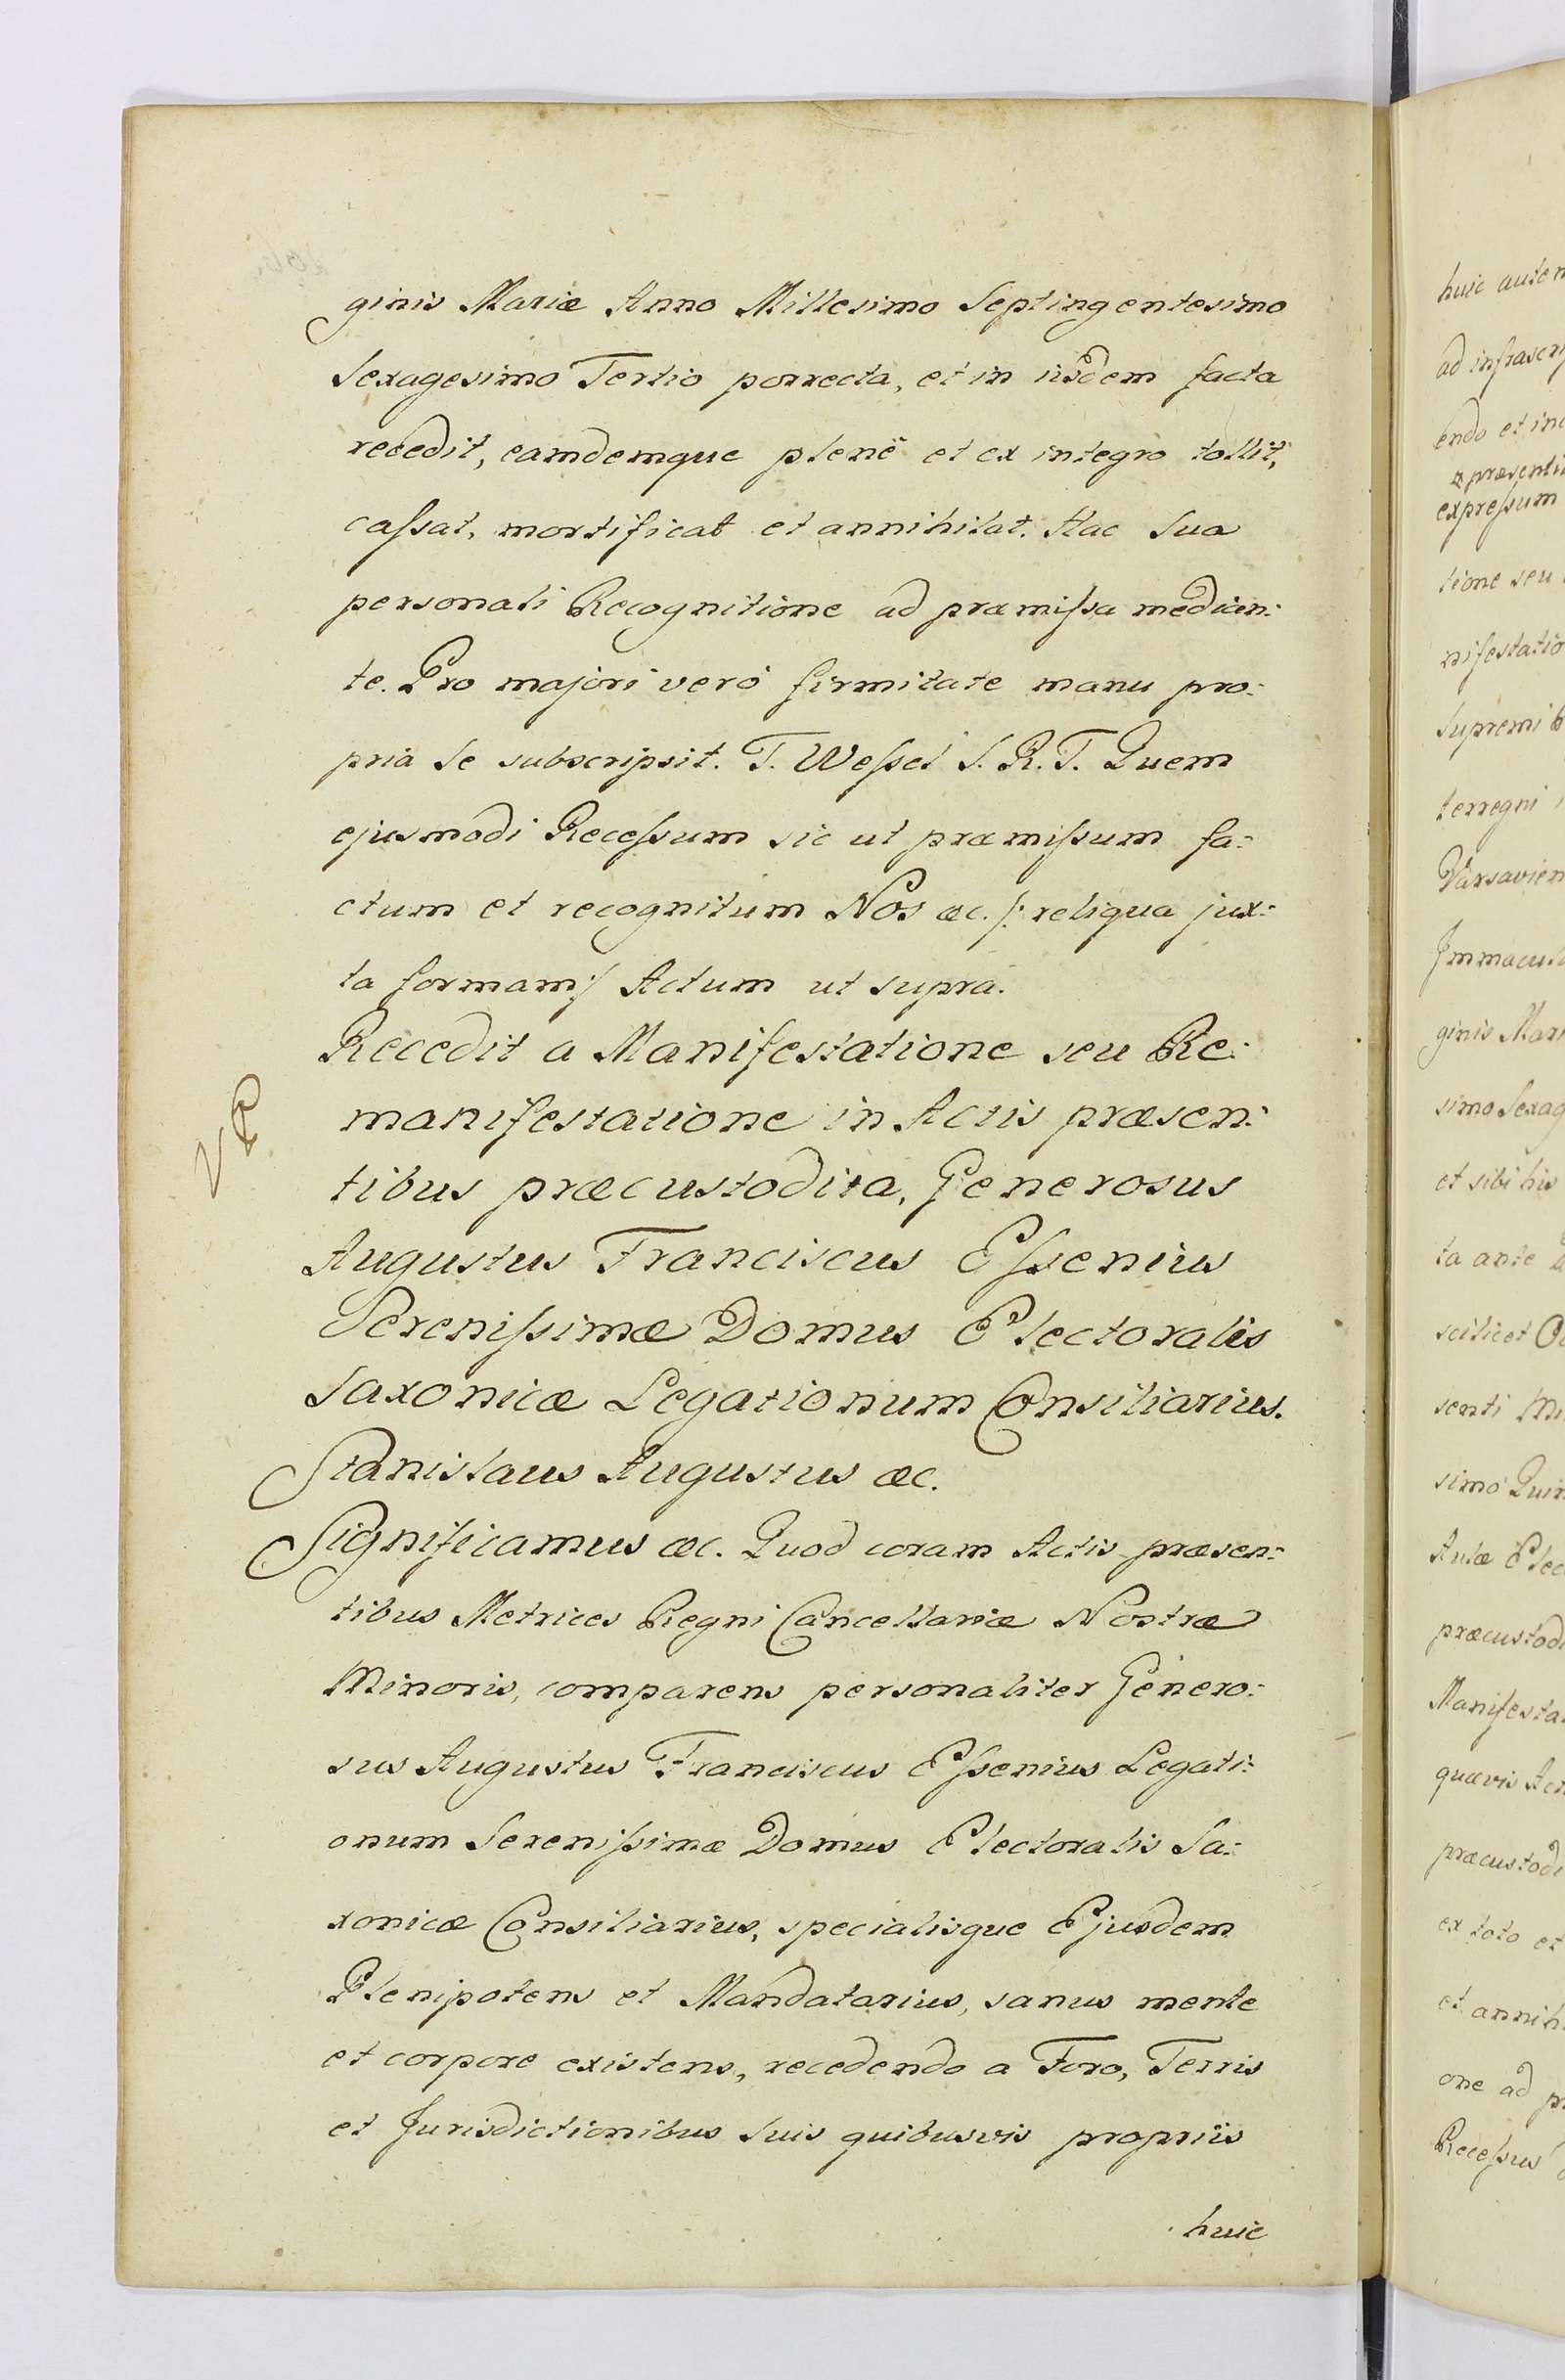 ginis Mariæ Anno Millesimo Septingentesimo
Sexagesimo Tertio porrecta, et in iisdem facta
recedit, eamdemque plenè et ex integro tollit,
caſsat, mortificat et annihilat. Hac Sua
personali Recognitione ad præmiſsa median:
te. Pro majori verò firmitate manu pro:
pria Se subscripsit. T. Weſsel S. R. T. Quem
ejusmodi Receſsum sic ut præmiſsum fa:
ctum et recognitum Nos &c. /: reliqua jux:
ta formam :/ Actum ut supra.
Recedit a Manifestatione seu Re:
manifestatione in Actis præsen:
tibus præcustodita, Generosus
Augustus Franciscus Eſsenius
Sereniſsimæ Domus Electoralis
Saxonicæ Legationum Consiliarius.
Stanislaus Augustus &c.
Significamus &c. Quod coram Actis præsen:
tibus Metrices Regni Cancellariæ Nostræ
Minoris, comparens personaliter Genero:
sus Augustus Franciscus Eſsenius Legati:
onum Sereniſsimæ Domus Electoralis Sa:
xonicæ Consiliarius, specialisque Ejusdem
Plenipotens et Mandatarius, sanus mente
et corpore existens, recedendo a Foro, Terris
et Jurisdictionibus Suis quibusvis propriis
huic
VR
huic autem
ad infrascri
endo et in
præsenti
expreſsum
tione seu
nifestatio
Supremi
terregni
Varsavien
Immacul
ginis Mari
simo Sexag
et sibi his
ta ante
scilicet
senti
simo Quin
Aulæ Elec
præcustodi
Manifesta
quævis Act
præcustodi
ex toto et
et annih
one ad p
Receſsus